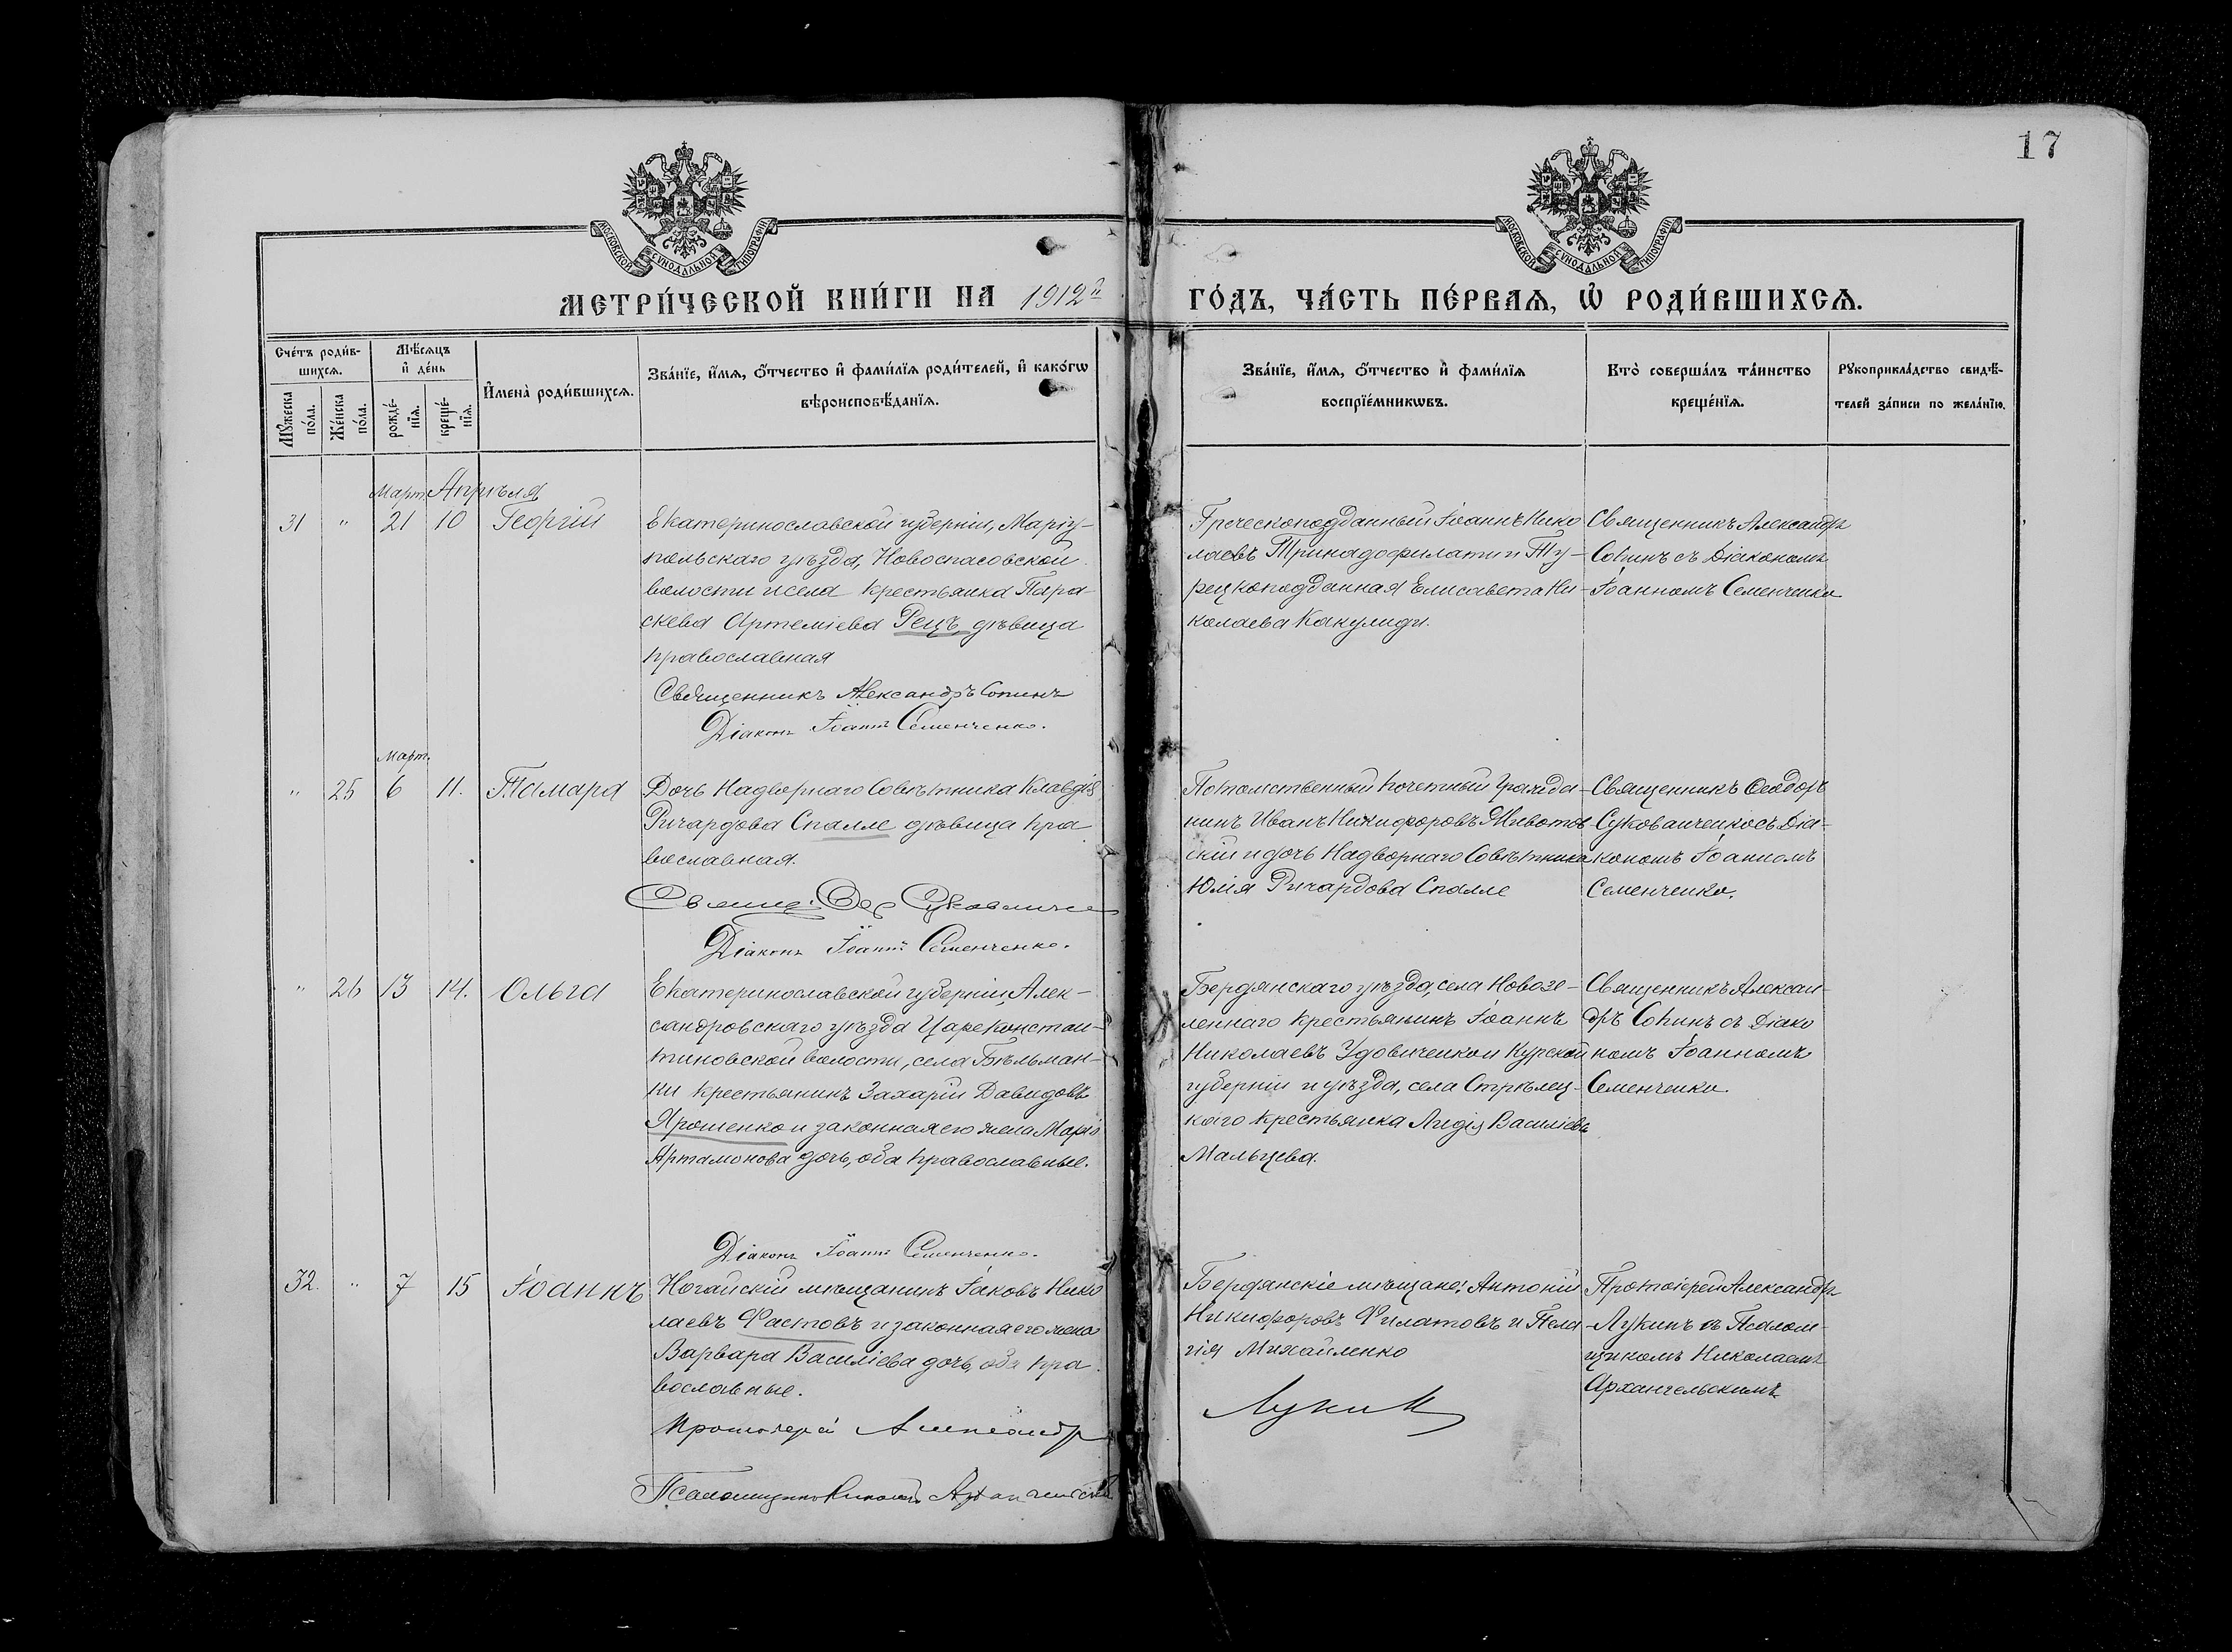 17
МОСКОВСКОЙ СѴНОДАЛЬНОЙ ТИПОГРАФІИ
МОСКОВСКОЙ СѴНОДАЛЬНОЙ ТИПОГРАФІИ
МЕТРИ́ЧЕСКОЙ КНИ́ГИ НА 1912й
ГО́ДЪ, ЧА́СТЬ ПЕ́РВАѦ, Ѽ РОДИ́ВШИХСѦ.
Сче́тъ роди́в-
шихсѧ.
Мꙋ́жеска
по́ла.
Же́нска
по́ла.
Мѣ́сѧцъ
и҆ де́нь
рожде́-
нїѧ.
креще́-
нїѧ.
И҆мена̀ роди́вшихсѧ.
Зва́нїе, и҆́мѧ, ѻ҆́тчество и҆ фами́лїѧ роди́телей, и҆ како́гѡ
вѣроисповѣ́данїѧ.
Зва́нїе, и҆́мѧ, ѻ҆́тчество и҆ фами́лїѧ
воспрїе́мникѡвъ.
Кто̀ соверша́лъ та́инство
креще́нїѧ.
Рꙋкоприкла́дство свидѣ́-
телей за́писи по жела́нїю.
Март. Апрѣля
31 " 21 10 Георгій
Екатеринославской губерніи, Маріу-
польскаго уѣзда, Новоспасовской
волости и села крестьянка Пара-
скева Артеміева Рецъ, дѣвица
православная
Священникъ Александръ Сопинъ
Діаконъ Іоаннъ Семенченко.
Греческоподданный Іоаннъ Нико
лаевъ Тринадофилати и Ту-
рецкоподданная Елисавета Ни-
колаева Какулиди.
Священникъ Александръ
Сопинъ съ Діакономъ
Іоанномъ Семенченко
Март.
" 25 6 11. Тамара
Дочь Надворнаго Совѣтника Клавдія
Ричардова Спалле дѣвица пра
вославная.
Діаконъ Іоаннъ Семенченко.
Потомственный почетный гражда-
нинъ Иванъ Никифоровъ Животов-
скій и дочь Надворнаго Совѣтника
Юлія Ричардова Спалле
Священникъ Ѳеодоръ
Сукованченко съ Діа-
кономъ Іоанномъ
Семенченко.
" 26 13 14. Ольга
Екатеринославской губерніи, Алек-
сандровскаго уѣзда Цареконстан-
тиновской волости, села Бѣльман-
ки крестьянинъ Захарій Давидовъ
Ярошенко и законная его жена Марія
Артамонова дочь, оба православные.
Діаконъ Іоаннъ Семенченко.
Бердянскаго уѣзда, села Новозе-
леннаго крестьянинъ Іоаннъ
Николаевъ Удовиченко и Курской
губерніи и уѣзда, села Стрѣлец-
каго крестьянка Лидія Василіева
Мальцева.
Священникъ Алексан-
дръ Сопинъ съ Діако
номъ Іоанномъ
Семенченко
32. " 7 15 Іоаннъ
Ногайскій мѣщанинъ Іаковъ Нико
лаевъ Фастовъ и законная его жена
Варвара Василіева дочь, оба пра
вославные.
Протоіерей Александръ
Псаломщикъ Николай Архангельскій
Бердянскіе мѣщане: Антоній
Никифоровъ Филатовъ и Пела-
гія Михайленко
Лукинъ
Протоіерей Александръ
Лукинъ съ Псалом-
щикомъ Николаемъ
Архангельскимъ